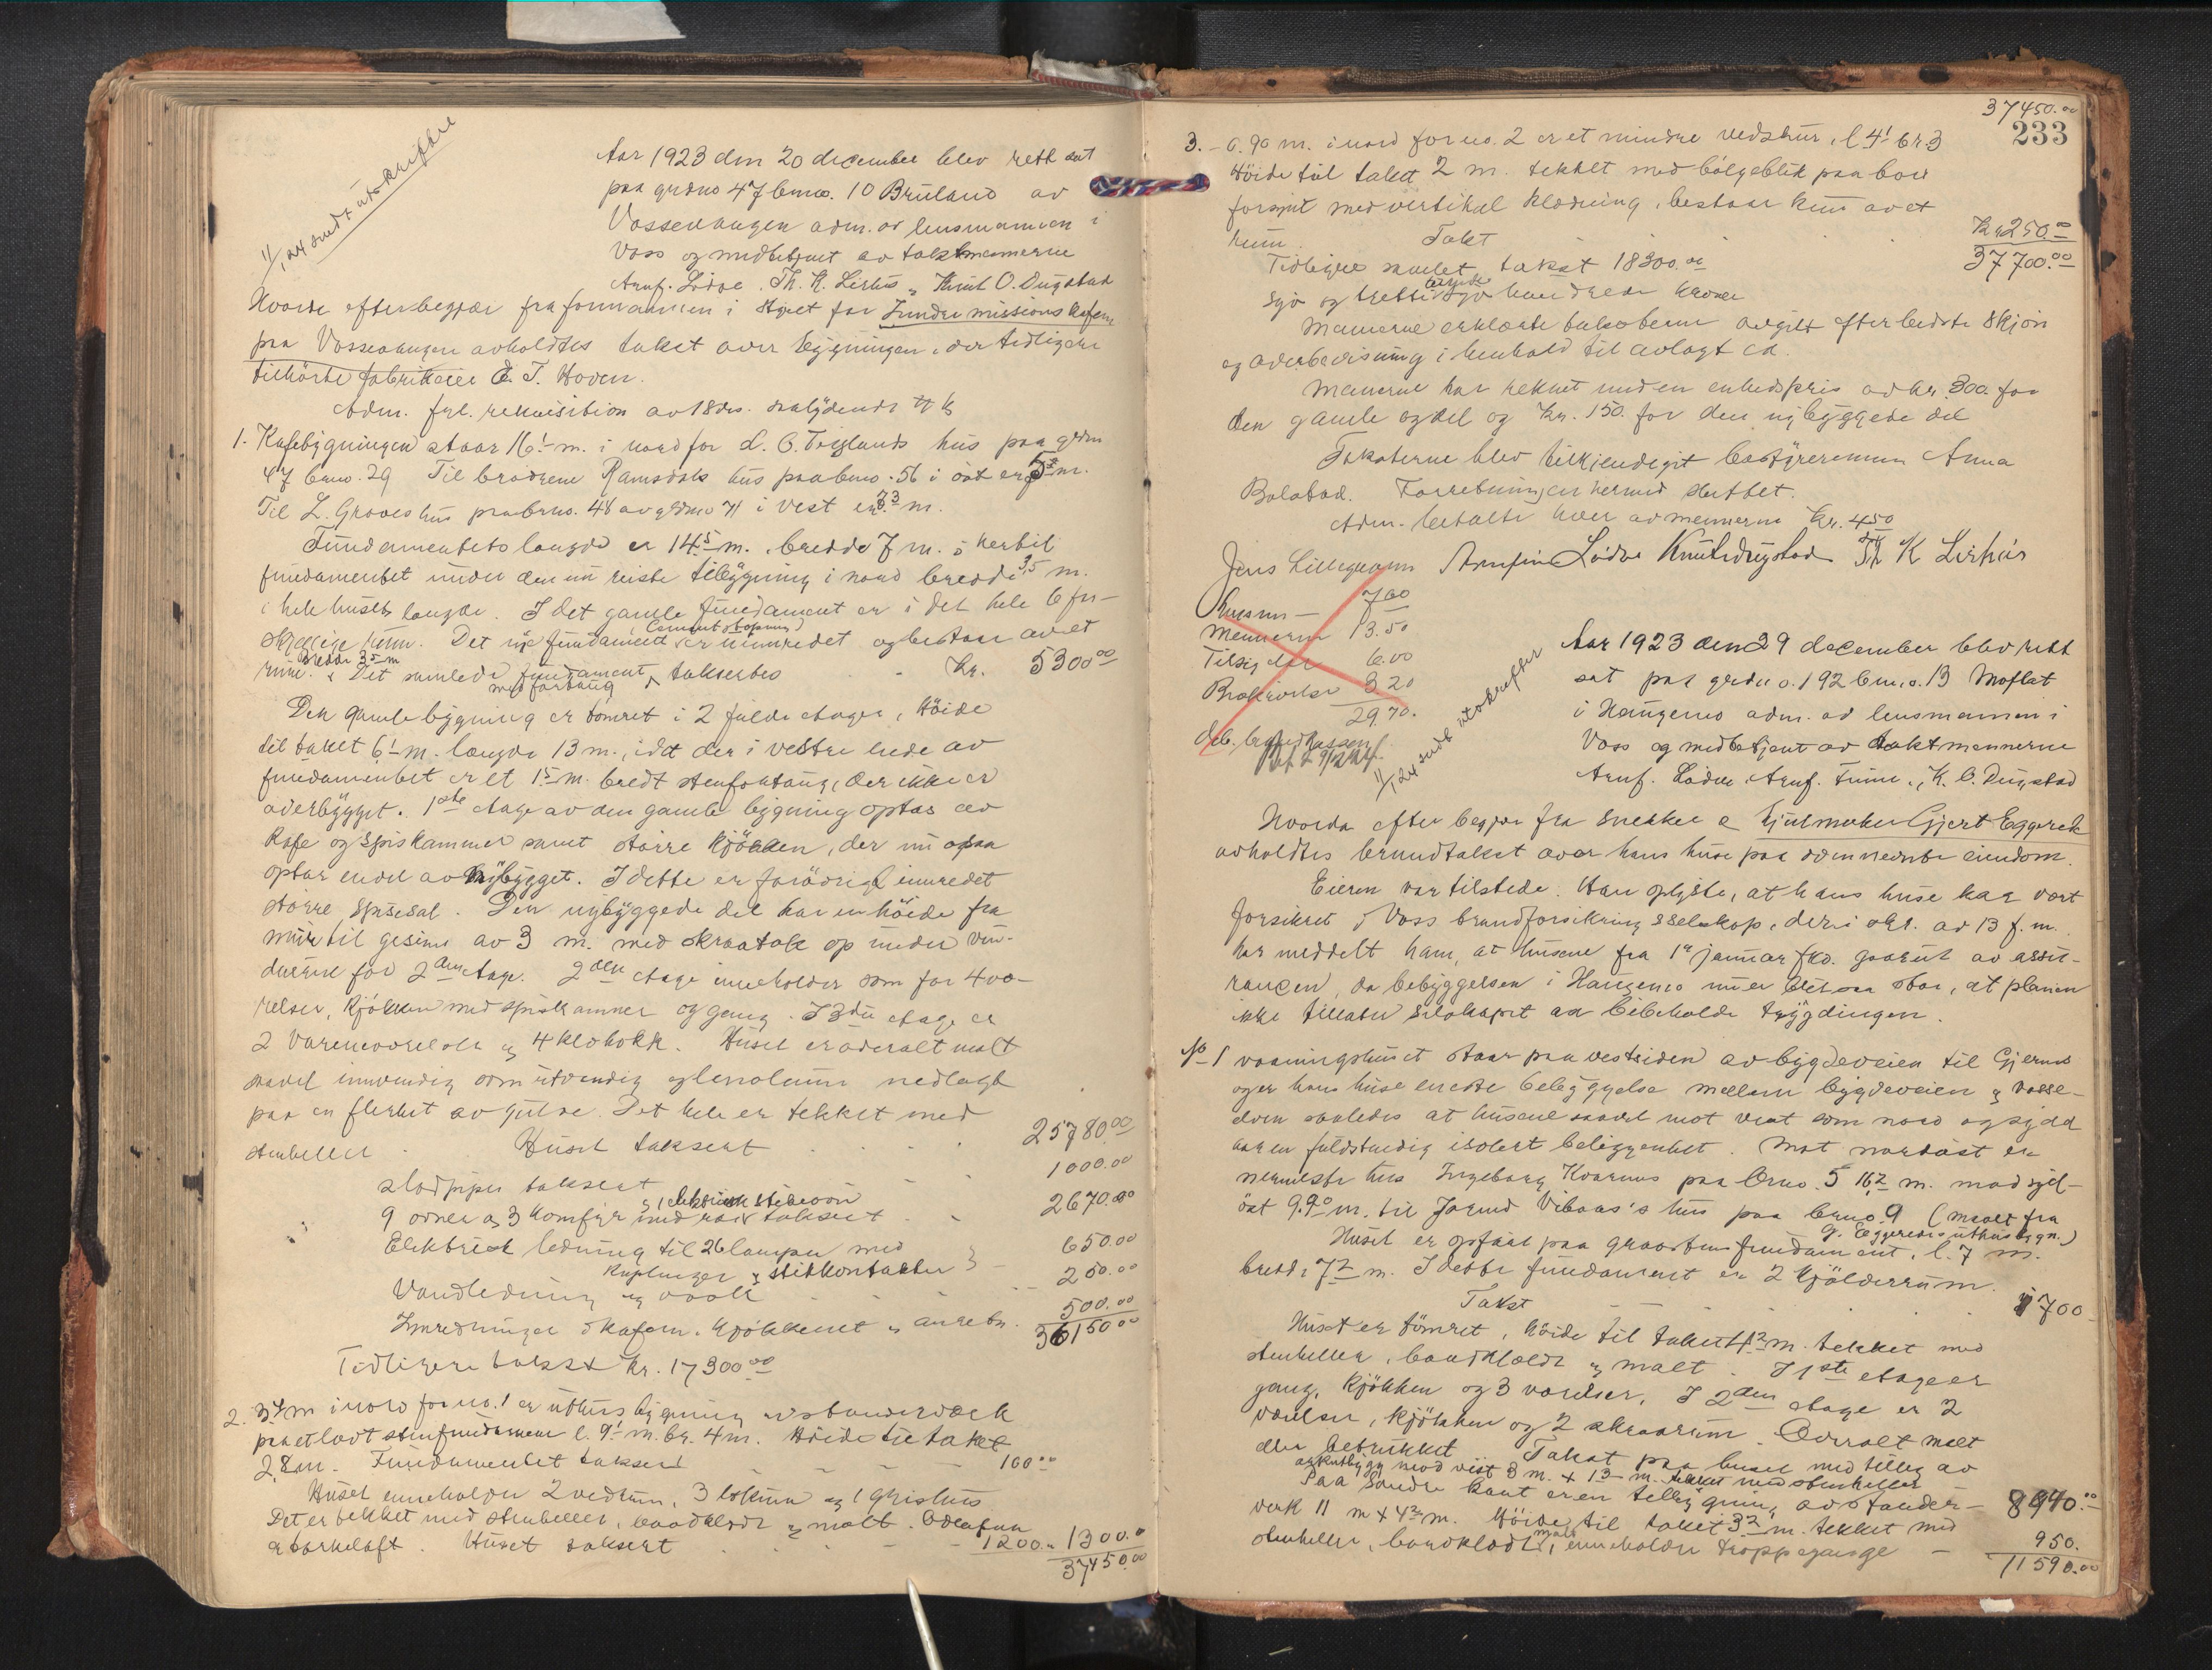 11/1 24 sendt utskrifter
Aar 1923 den 20 december blev rett sat
paa grdno 47 bruno. 10 Bruland av
Vossevangen adm. av lensmannen i
Voss og medbetjent av takstmennerne
Arnf. Lödve, Th. K. Lirhus og Knut O. Dugstad
Hvorda efter begjær fra formannen i styret for Indremissions kafeen
paa Vossevangen avholdtes takst over bygningen, der tidligere
tilhörte fabrikeier E. T. Hoven.
Adm. frl. rekvisition av 18 ds. saalydende
1. Kafebygningen staar 16 1 m. i nord for L. O. Tveglands hus paa grdno
47 bruno. 29 Til brödrene Ramsdals hus paa bruno. 56 i öst er m.
Til L. Graves hus paa bruno. 48 av grdno 71 i vest er 7 3 m.
Fundamentets længde er 14 5 m. bredde 7 m. hertil
fundamentet under den nu reiste tilbygning i nord bredde 3,5 m.
i hele husets længde. I det gamle fundament er i det hele 6 for-
skjellige rum. Det nye fundament (Cementstöpning) er uinnredet og bestaar av et
rum. Bredde 3 5 m Det samlede fundament med fortaug takseres - kr. 5300 00
Den gamle bygning er tömret i 2 fulde etager, Höide
til taket 6 1 m. længde 13 m., idet der i vestre ende av
fundamentet er et 1 5 m. bredt stenfortaug, der ikke er
overbygget. 1ste etage av den gamle bygning optas av
Kafe og spiskammer samt större kjökken, der nu ogsaa
optar endel av nybygget. I dette er forövrig innredet
större spisesal. Den nybyggede del har en höide fra
mur til gesims av 3 m. med skraatak op under vin-
duerne for 2den etage. 2den etage inneholder som for 4 væ-
relser, kjökken med spiskammer og gang. I 3die etage er
2 værelser og 4 klekott. Huset er overalt malt
saavel innvendig som utvendig og lenoleum nedlagt
paa en flerhet av gulve. Det hele er tekket med
stenheller. Huset taksert 25780.00
2 lodpiper taksert - - 1000.00
9 ovner og 3 komfyr og 1 elektrisk stekeovn med rör taksert - - 2670.00
Elektrisk ledning til 26 lamper med
kuplinger og stikkontakter } - 650.00
Vandledning og vask - - 250.00
Innredninger i kafeen, kjökkenet og anretn. 500.00
36150 00
Tidligere takst kr. 17300 00
2. 3 4 m i nord for no. 1 er uthusbygning av stenderværk
paa et lavt stenfundament l. 9 1 m. br. 4 m. Höide til taket
2,8 m. Fundamentet taksert - - - 100 00
Huset inneholder 2 vedrum, 3 lokum og 1 grishus
Det er tekket med stenheller, bordklædt og malt. Ovenfor
er törkeloft. Huset taksert - - - 1200.- 1300.0
37450.00
37450.00
233
3. - 0.90 m. i nord for no. 2 er et mindre vedskur, l 4 1 br. 3
Höide til taket 2 m. tekket med bölgeblik paa bord
forsynt med vertikal klædning, bestaar kun av et
rum. Takst Kr 250.00
Tidligere samlet takst 18300.00 37700.00
syv og tretti tusinde syv hundrede kroner
Mennerne erklærte taksterne avgit efter bedste skjön
og overbevisning i henhold til avlagt ed.
Mennerne har reknet med en enhedspris av kr. 300. for
den gamle del og kr. 150. for den nybyggede del
Taksterne blev tilkjendegit bestyrerinnen Anna
Bolstad. Forretningen hermed sluttet.
Adm. betalte hver av mennerne kr. 4.50
Jens Lillegraven Arnfinn Lödve Knut Dugstad Th K Lirhus
Lensm - 7.00
Mennerne 13.50
Tilsig 6.00
Beskrivelse 3.20
29.70.
11/1 24 sendt utskrifter
Aar 1923 den 29 december blev rett
sat paa grdno. 192 bruno. 13 Moflat
i Haugerno adm. av lensmannen i
Voss og medbetjent av takstmennerne
Arnf. Lödve Arnf. Finne, K. O. Dugstad
Hvorda efter begjær fra snekker og hjulmaker Gjert Eggereide
avholdtes brandtakst over hans huse paa ovennevnte eiendom.
Eieren var tilstede. Han oplyste, at hans huse har vært
forsikret i Voss brandforsikringsselskap, der i skr. av 13 f. m.
har meddelt ham, at husene fra 1ste januar fkd. gaar ut av assu-
rancen, da bebyggelsen i Haugerno nu er blit saa stor, at planen
ikke tillater selskapet aa bibeholde trygdingen.
No 1 vaaningshuset staar paa vestsiden av bygdeveien til Gjernes
og er hans huse eneste bebyggelse mellem bygdeveien og Vosse-
elven saaledes at husene saavel mot vest som nord og syd
har en fuldstendig isolert beliggenhet. Mot nordöst er
nermeste hus Ingeborg Kvarnes paa bruno. 5 16 2 m. mod syd-
öst 9.90 m. til Jorund Vibaas's hus paa bruno. 9 (maalt fra
G. Eggereides uthusbygn.)
Huset er opfört paa graastensfundament, l. 7 m.
bredde 7 2 m. I dette fundament er 2 kjölderrum.
Takst 1700
Huset er tömret, höide til taket 4 2 m. tekket med
stenheller, bordklædt og malt. I 1ste etage er
gang, kjökken og 3 værelser, I 2den etage er 2
værelser, kjökken og 2 skraarum. Overalt malt
eller betrukket. Takst paa huset med tillæg av
utbygg mod vest 3 m. x 1 3 m. tekket med stenheller 8940.00
Paa söndre kant er en tilbygning av stender-
verk 11 m x 4 2 m. Höide til taket 3 2 m. tekket med
stenheller, bordklædt, malt, inneholder trappegange - 950.
11590.00